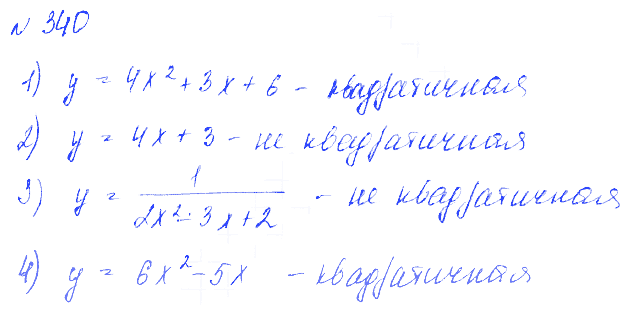 № 340
1) y = 4x² + 3x + 6 - квадратичная
2) y = 4x + 3 - не квадратичная
3) y = 1/(2x² - 3x + 2) - не квадратичная
4) y = 6x² - 5x - квадратичная